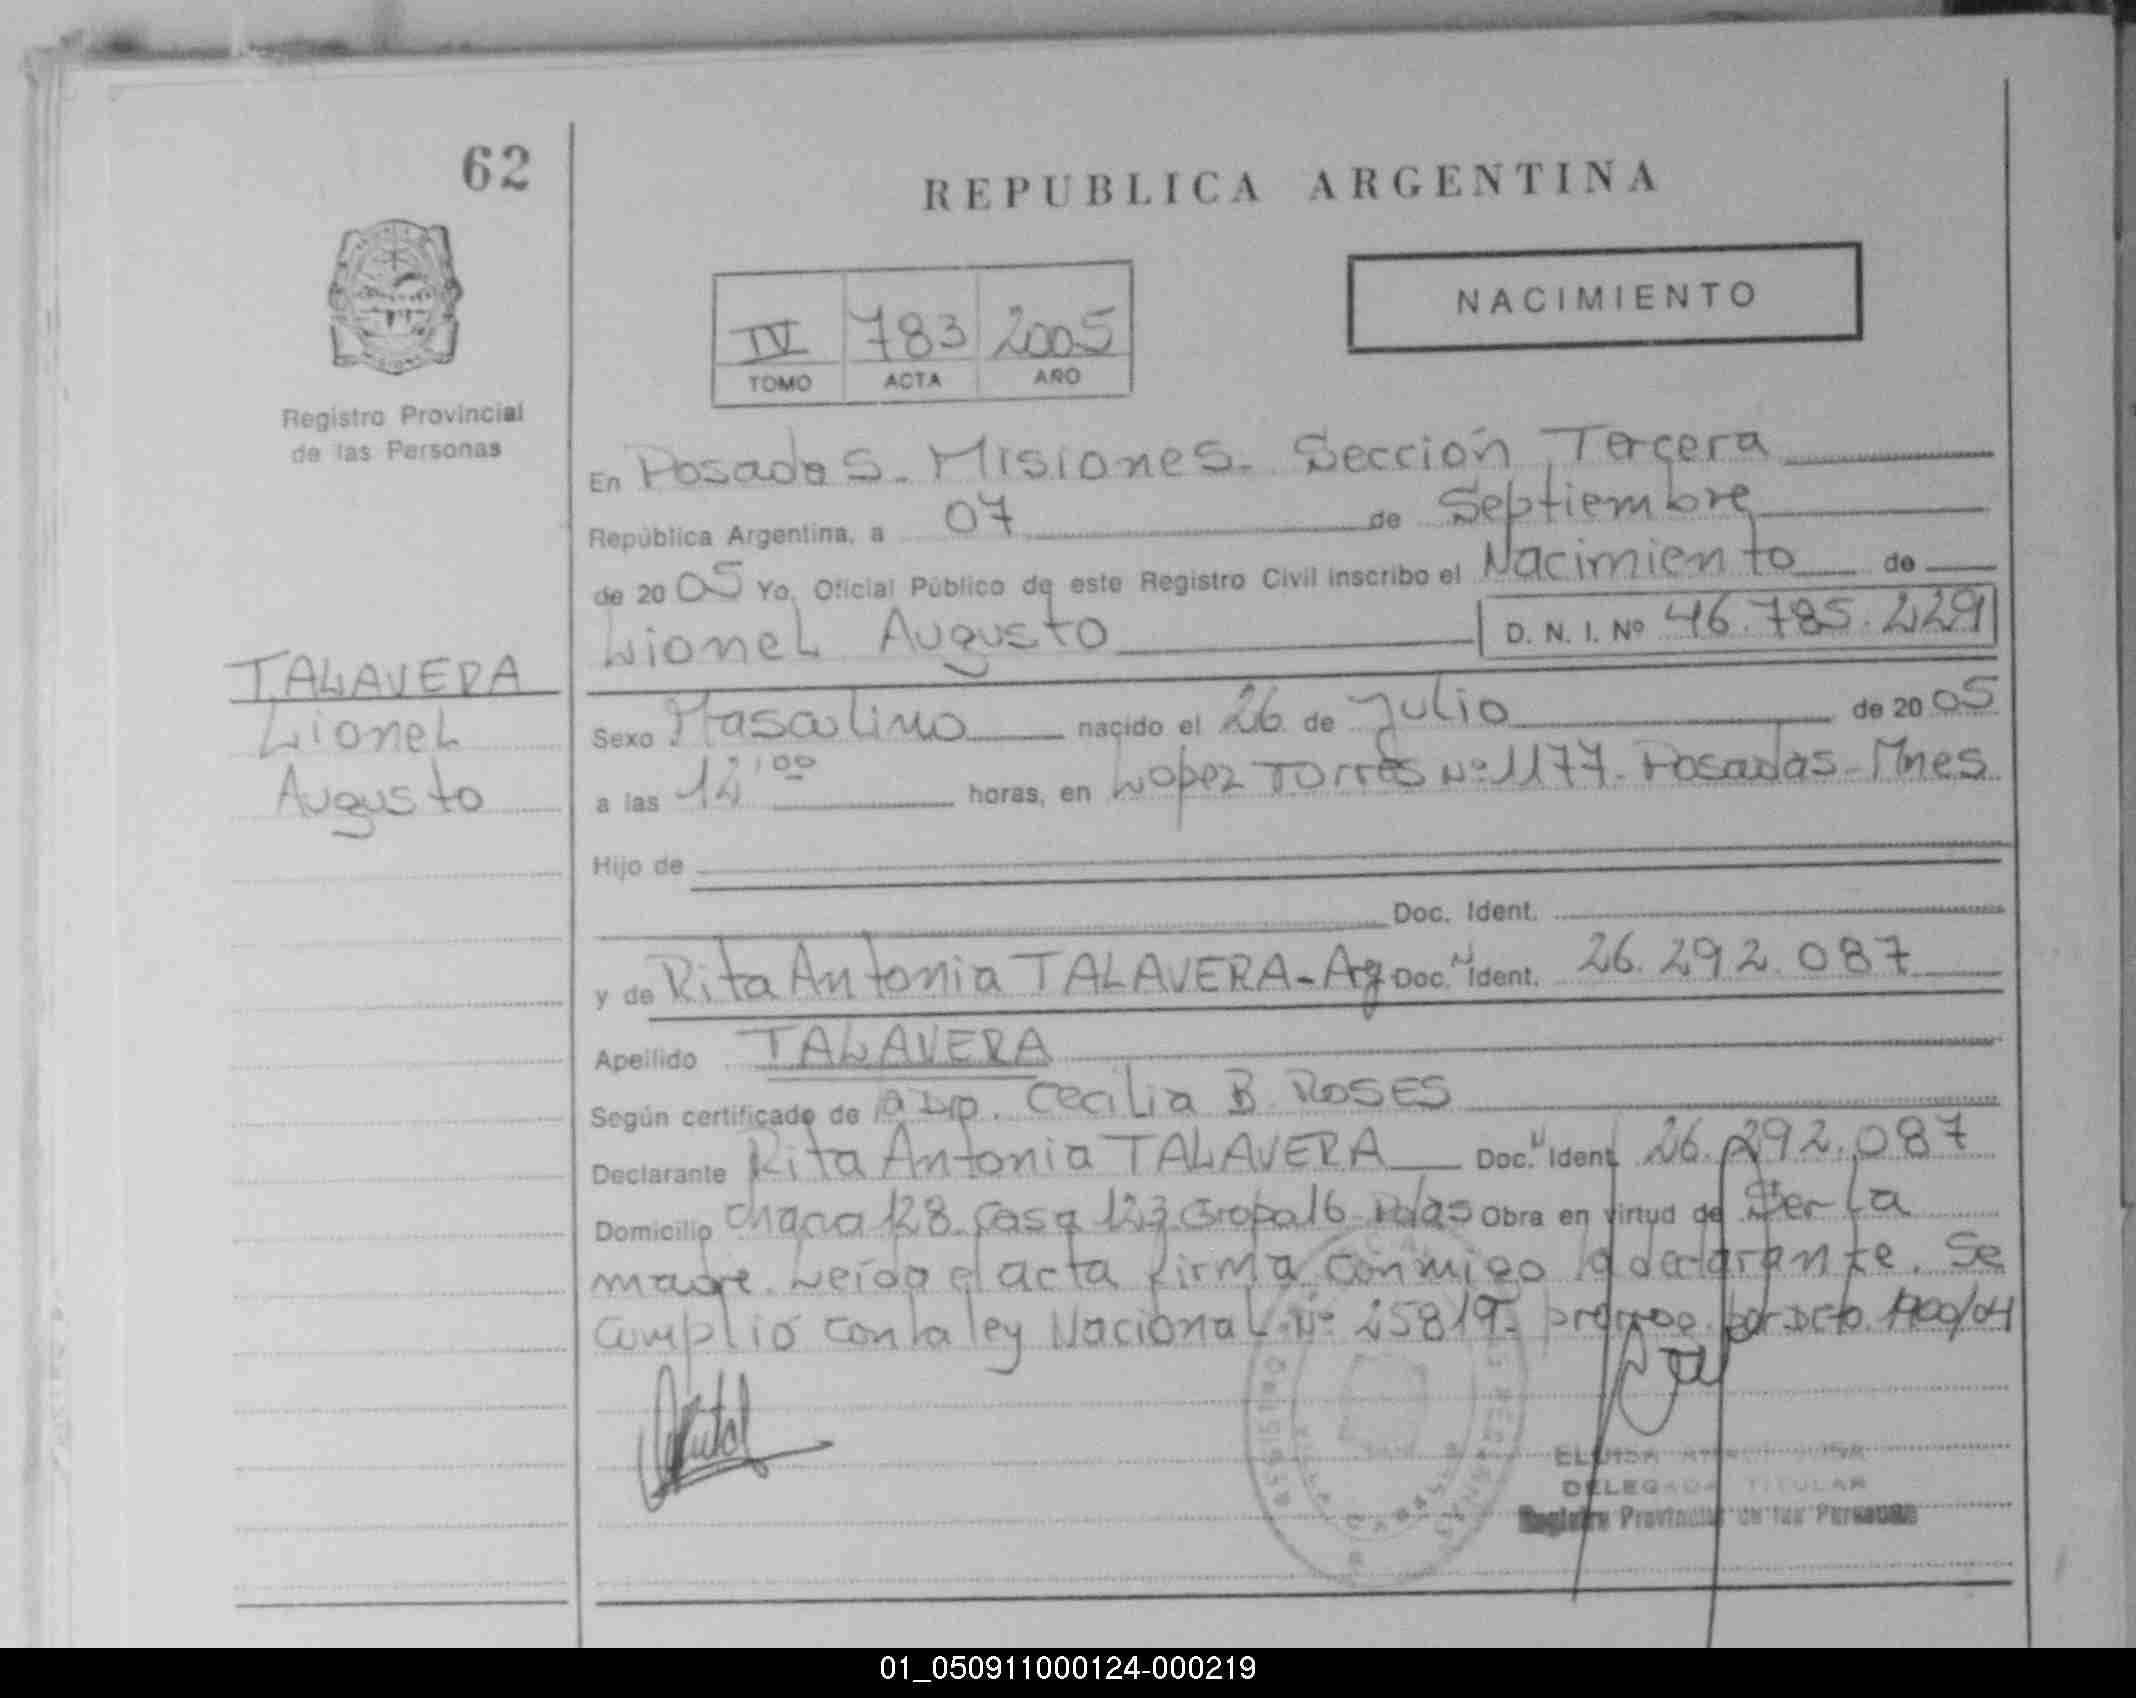 62
REPUBLICA ARGENTINA
NACIMIENTO
IV 783 2005
TOMO ACTA AÑO
Registro Provincial
de las Personas
En Posadas - Misiones - Sección Tercera
República Argentina, a 07 de Septiembre
de 2005 Yo, Oficial Público de este Registro Civil inscribo el Nacimiento de
Lionel Augusto D. N. I. Nº 46.785.229
TALAVERA
Lionel
Augusto
Sexo Masculino nacido el 26 de Julio de 2005
a las 12'00 horas, en Lopez Torres Nº 1177 - Posadas - Mnes
Hijo de
Doc. Ident.
y de Rita Antonia TALAVERA - Arg Doc. N Ident. 26.292.087
Apellido TALAVERA
Según certificado de la Dra. Cecilia B. ROSES
Declarante Rita Antonia TALAVERA Doc. N Ident 26.292.087
Domicilio Chacra 128 Casa 123 Pdas Obra en virtud de Ser la
madre. Leída el acta firma conmigo la declarante. Se
cumplió con la ley Nacional Nº 25819 por Dcto. 1900/04
DELEGADA TITULAR
Registro Provincial de las Personas
01_050911000124-000219